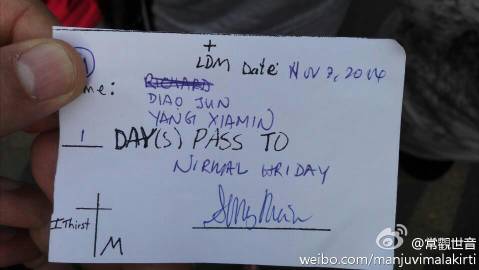 +
LDM Date: NOV 7, 2014
Name: RICHARD
DIAO JUN
YANG XIAMIN
1 DAY(S) PASS TO
NIRMAL HRIDAY
I Thirst M
@常觀世音
weibo.com/manjuvimalakirti